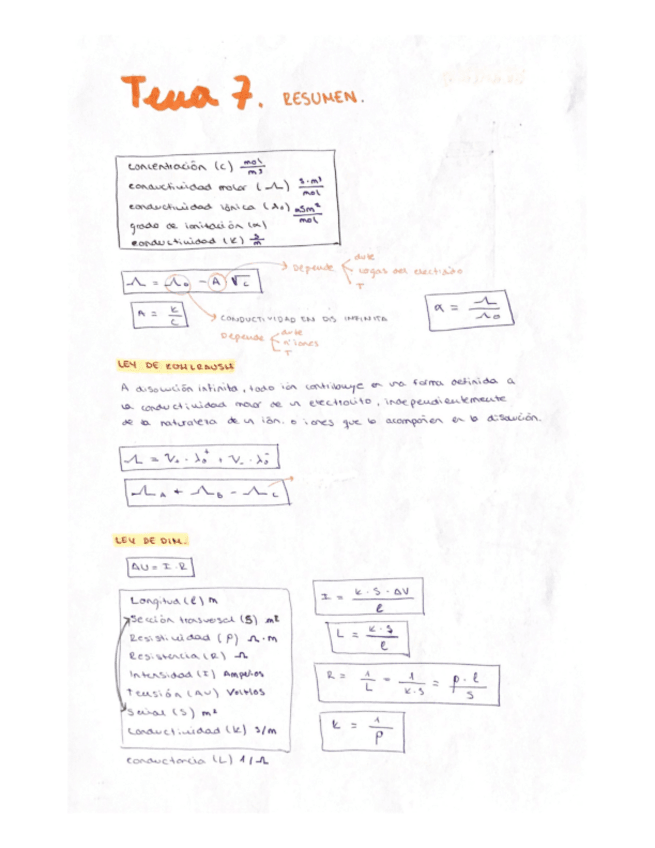 Tema 7. RESUMEN.
concentración (c) mol/m³
conductividad molar (Λ) S·m²/mol
conductividad iónica (λ₀) mSm²/mol
grado de ionización (α)
conductividad (K) S/m
Λ = Λ₀ - A √c
Depende
dvte
cargas del electrolito
T
A = K/C
CONDUCTIVIDAD EN DIS INFINITA
Depende
dvte
iones
T
α = Λ/Λ₀
LEY DE KOHLRAUSH
A disolución infinita, todo ión contribuye en una forma definida a
la conductividad molar de un electrolito, independientemente
de la naturaleza de un ión o iones que lo acompañen en la disolución.
Λ = V₊ · λ₀⁺ + V₋ · λ₀⁻
Λ_A + Λ_B - Λ_C
LEY DE OHM.
ΔU = I·R
Longitud (l) m
Sección transversal (S) m²
Resistividad (ρ) Ω·m
Resistencia (R) Ω
Intensidad (I) Amperios
Tensión (ΔU) Voltios
(S) m²
Conductividad (K) S/m
conductancia (L) 1/Ω
I = K·S·ΔU/l
L = K·S/l
R = 1/L = 1/K·S = ρ·l/S
K = 1/ρ